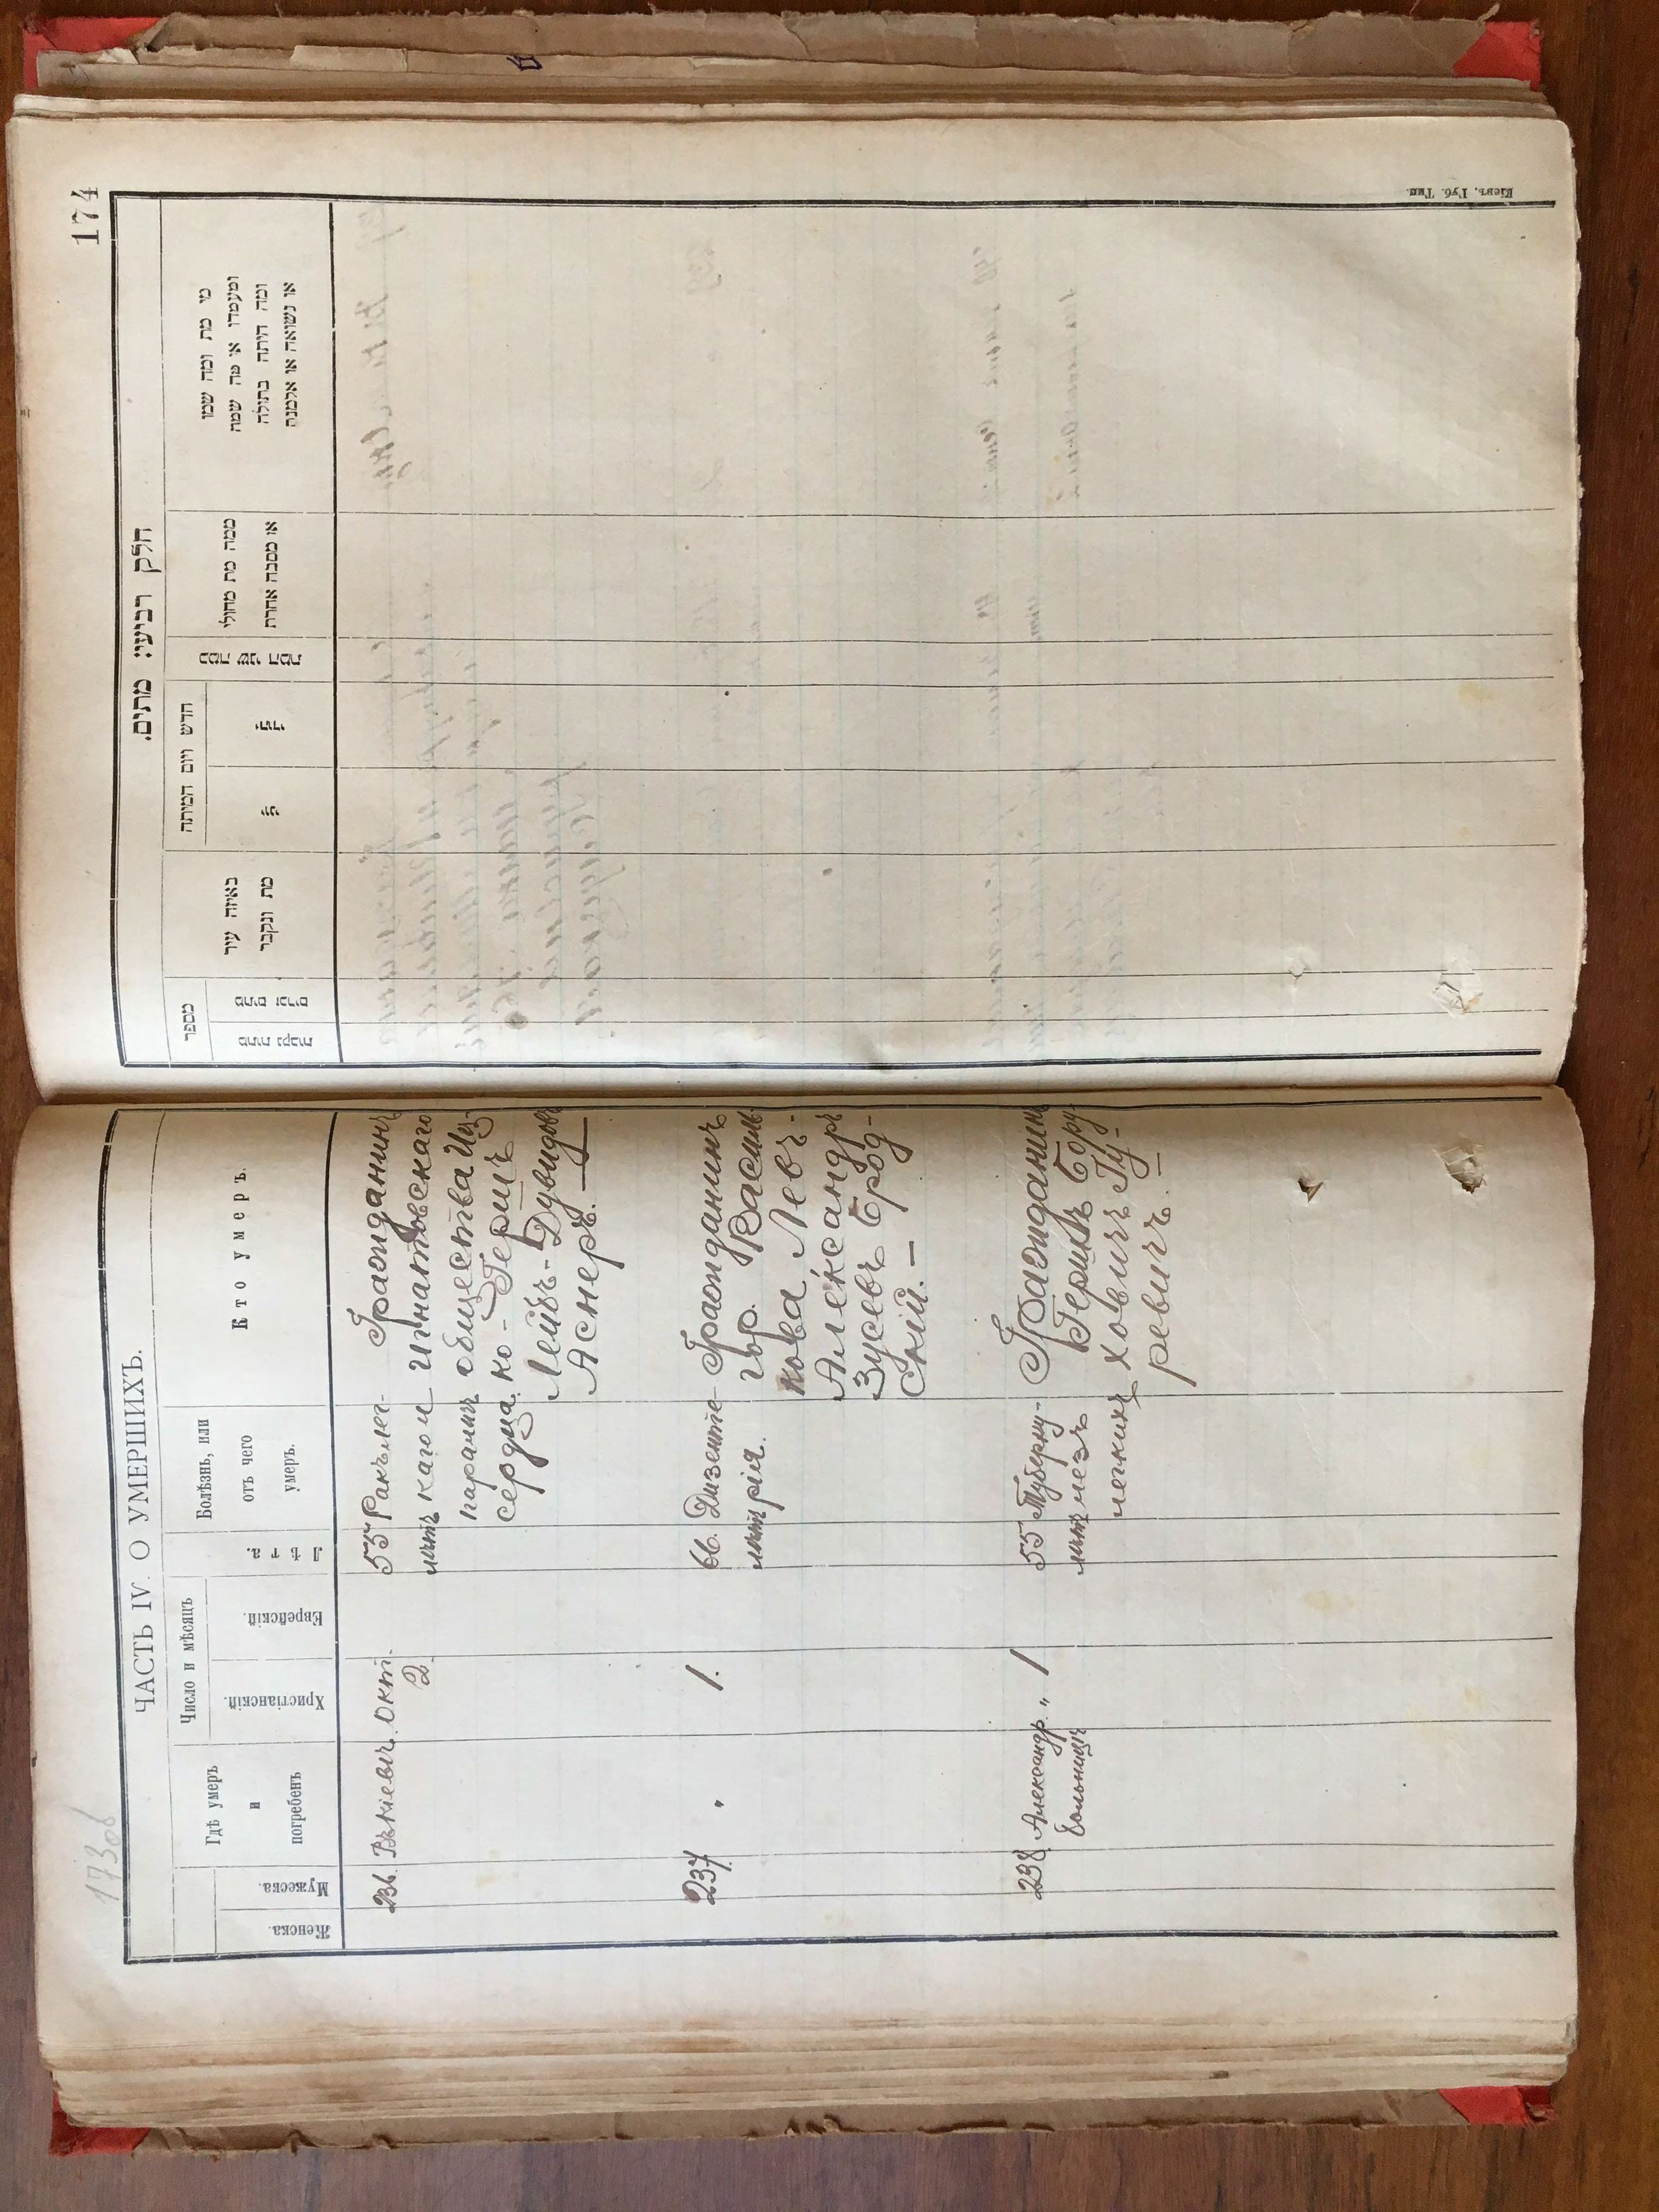 173об
ЧАСТЬ IV. О УМЕРШИХЪ.
Женска.
Мужеска.
Гдѣ умеръ
и
погребенъ
Число и мѣсяцъ
Христіанскій.
Еврейскій.
Лѣта.
Болѣзнь, или
отъ чего
умеръ.
Кто умеръ.
236. Въ Кіевѣ. Окт.
2.
55 лѣтъ
Ракъ лег-
каго и
параличъ
сердца.
Гражданинъ
Игнатовскаго
общества Иц-
ко-Герш
Лейбъ-Дувидовъ
Аснеръ. —
237. " 1.
66. лѣтъ
Дизенте-
рія.
Гражданинъ
гор. Василь-
кова Левъ-
Александръ
Зусевъ Брод-
скій. —
238. Александр. " 1
больницѣ
55 лѣтъ
Туберку-
лезъ
легкихъ
Гражданинъ
Гершъ Бору-
ховичъ Гу-
ревичъ. —
174
חלק רביעי: מתים.
מספר
מתות נקבות
מתים זכרים
באיזה עיר
מת ונקבר
חדש ויום המיתה
כמה שני המת
ממה מת מחולי
או מסבה אחרת
מי מת ומה שמו
ומעמדו או מה שמה
ומה היתה בתולה
או נשואה או אלמנה
Кіевъ, Губ. Тип.